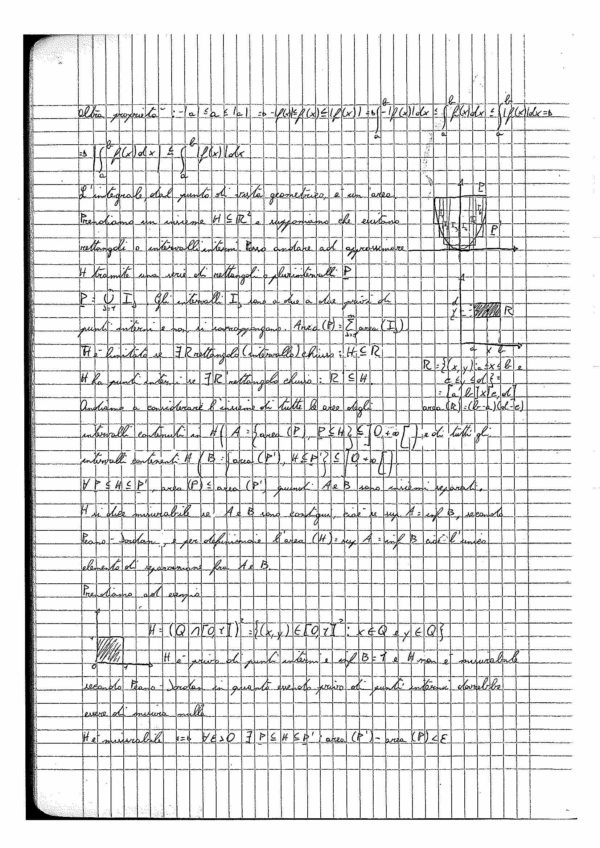 Altra proprietà : -|a| ≤ a ≤ |a| => -|f(x)| ≤ f(x) ≤ |f(x)| => ∫_a^b -|f(x)| dx ≤ ∫_a^b f(x) dx ≤ ∫_a^b |f(x)| dx =>
=> |∫_a^b f(x) dx| ≤ ∫_a^b |f(x)| dx
L'integrale, dal punto di vista geometrico, è un'area.
Prendiamo un insieme H ⊆ R² e supponiamo che esistano
rettangoli o intervalli interni. Posso andare ad approssimare
H tramite una serie di rettangoli o plurintervalli P
P = ∪ I_j Gli intervalli I_j sono a due a due privi di
punti interni e non si sovrappongano. Area (P) = Σ area (I_j)
H è limitato se ∃ R rettangolo (intervallo) chiuso : H ⊆ R
H ha punti interni se ∃ R' rettangolo chiuso : R' ⊆ H.
R = {(x, y) : a ≤ x ≤ b e
c ≤ y ≤ d} =
= [a, b] x [c, d]
area (R) = (b-a)(d-c)
Andiamo a considerare l'insieme di tutte le aree degli
intervalli contenuti in H (A = {area (P), P ⊆ H} ⊆ ]0, +∞[) e di tutti gli
intervalli contenenti H (B = {area (P'), H ⊆ P'} ⊆ ]0, +∞[)
∀ P ⊆ H ⊆ P', area (P) ≤ area (P') quindi A e B sono insiemi separati.
H si dice misurabile se A e B sono contigui, cioè se sup A = inf B, secondo
Peano-Jordan, e per definizione l'area (H) = sup A = inf B cioè l'unico
elemento di separazione fra A e B.
Prendiamo ad esempio
H = (Q ∩ [0,1])² = {(x, y) ∈ [0,1]² : x ∈ Q e y ∈ Q}
H è privo di punti interni e inf B = 1 e H non è misurabile
secondo Peano-Jordan in quanto essendo privo di punti interni dovrebbe
essere di misura nulla
H è misurabile <=> ∀ε>0 ∃ P ⊆ H ⊆ P' : area (P') - area (P) < ε